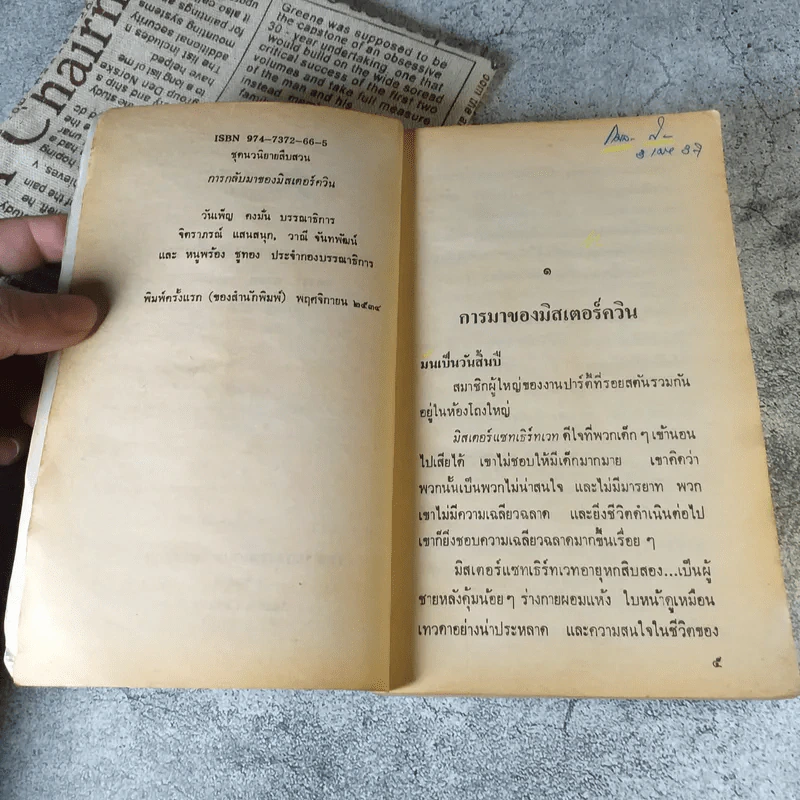 Chairm
Greene was supposed to be
the capstone of an obsessive
30 - year undertaking, one that
would build on the wide spread
critical success of the first two
volumes and take full measure
of the man and his
ISBN 974-7372-66-5
ชุดนวนิยายสืบสวน
การกลับมาของมิสเตอร์ควิน
วันเพ็ญ คงมั่น บรรณาธิการ
จิตราภรณ์ แสนสนุก, วาณี จันทพัฒน์
และ หนูพร้อง ชูทอง ประจำกองบรรณาธิการ
พิมพ์ครั้งแรก (ของสำนักพิมพ์) พฤศจิกายน ๒๕๓๔
๑
การมาของมิสเตอร์ควิน
มันเป็นวันสิ้นปี
สมาชิกผู้ใหญ่ของงานปาร์ตี้ที่รอยสตันรวมกัน
อยู่ในห้องโถงใหญ่
มิสเตอร์แซทเธิร์ทเวท ดีใจที่พวกเด็ก ๆ เข้านอน
ไปเสียได้ เขาไม่ชอบให้มีเด็กมากมาย เขาคิดว่า
พวกนั้นเป็นพวกไม่น่าสนใจ และไม่มีมารยาท พวก
เขาไม่มีความเฉลียวฉลาด และยิ่งชีวิตดำเนินต่อไป
เขาก็ยิ่งชอบความเฉลียวฉลาดมากขึ้นเรื่อย ๆ
มิสเตอร์แซทเธิร์ทเวทอายุหกสิบสอง...เป็นผู้
ชายหลังคุ้มน้อย ๆ ร่างกายผอมแห้ง ใบหน้าดูเหมือน
เทวดาอย่างน่าประหลาด และความสนใจในชีวิตของ
๕